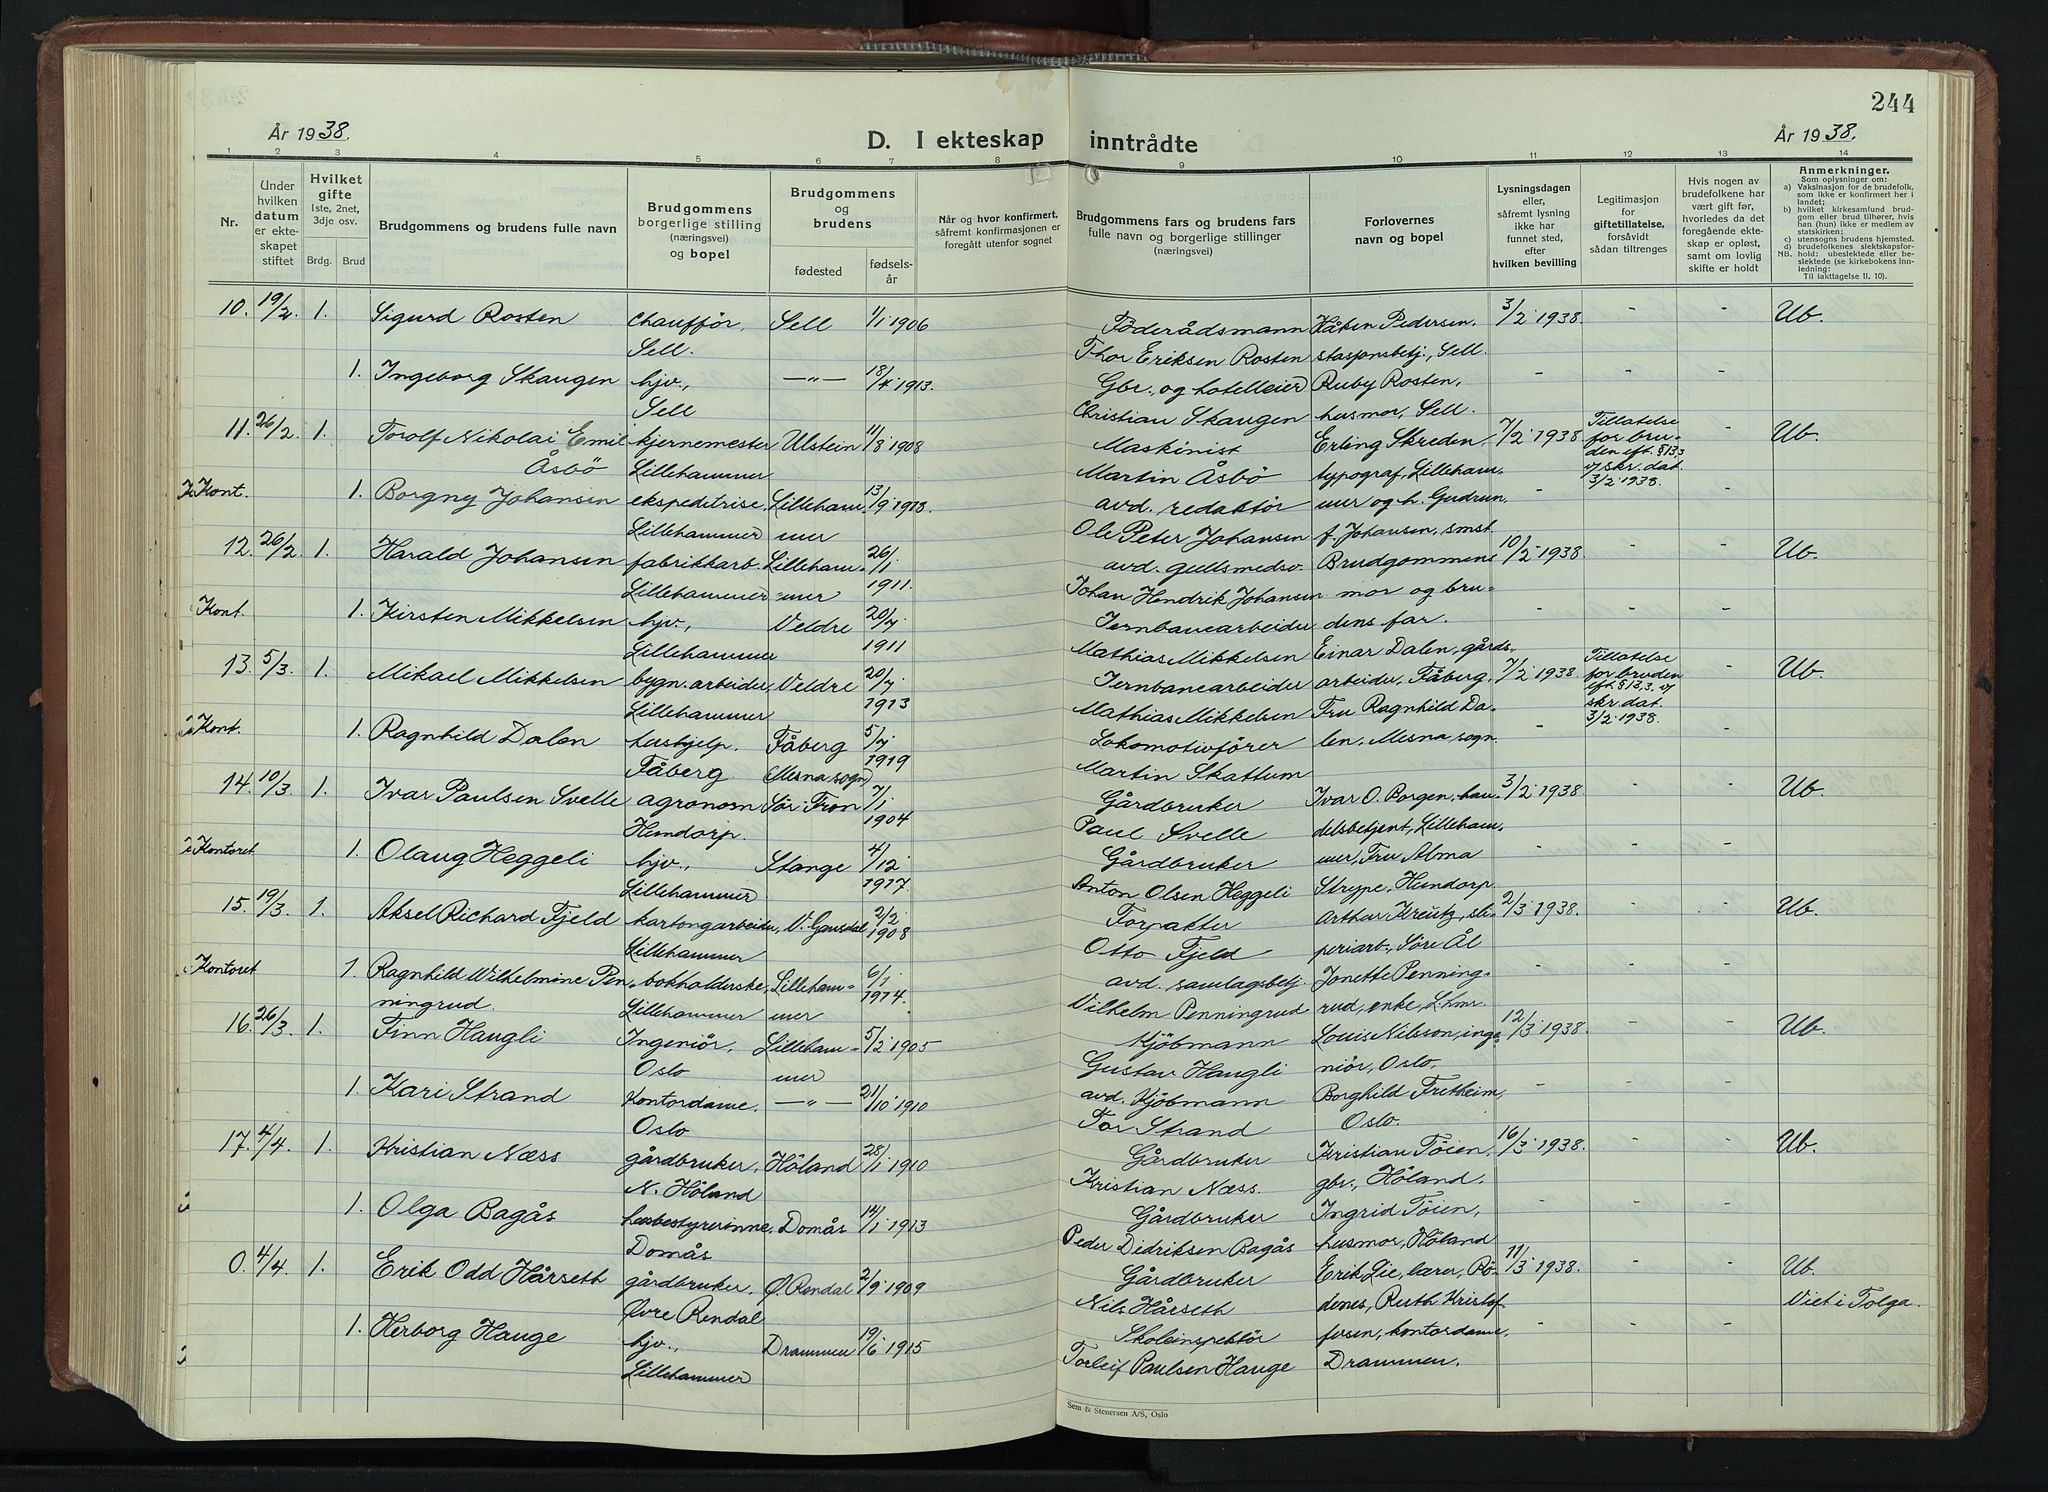 244
År 1938.
D. I ekteskap inntrådte
År 1938.
1 2 3 4 5 6 7 8 9 10 11 12 13 14
Nr.
Under hvilken datum er ekteskapet stiftet
Hvilket gifte
1ste, 2net, 3dje osv.
Brdg. Brud
Brudgommens og brudens fulle navn
Brudgommens borgerlige stilling (næringsvei) og bopel
Brudgommens og brudens
fødested
fødselsår
Når og hvor konfirmert, såfremt konfirmasjonen er foregått utenfor sognet
Brudgommens fars og brudens fars fulle navn og borgerlige stillinger (næringsvei)
Forlovernes navn og bopel
Lysningsdagen eller, såfremt lysning ikke har funnet sted, efter hvilken bevilling
Legitimasjon for giftetillatelse, forsåvidt sådan tiltrenges
Hvis nogen av brudefolkene har vært gift før, hvorledes da det foregående ekteskap er opløst, samt om lovlig skifte er holdt
Anmerkninger.
Som oplysninger om:
a) Vaksinasjon for de brudefolk, som ikke er konfirmert her i landet;
b) hvilket kirkesamfund brudgom eller brud tilhører, hvis han (hun) ikke er medlem av statskirken;
c) utensogns brudens hjemsted.
d) brudefolkenes slektskapsforhold: ubeslektede eller beslektede (se kirkebokens innledning:
NB.
Til iakttagelse II, 10).
10. 19/2 1. Sigurd Rosten Chauffør, Sell. Sell 1/1 1906 Föderådsmann Thor Eriksen Rosten Håken Pedersen, stasjonsbetj., Sell. 3/2 1938. - - Ub.
1. Ingeborg Skaugen hjv., Sell —"— 18/4 1913. Gbr. og hotelleier Christian Skaugen Ruby Rosten, husmor, Sell. - -
11. 26/2 1. Torolf Nikolai Emil Åsbö kjernemester Lillehammer Ulstein 11/8 1908 Maskinist Martin Åsbö Erling Skreden, typograf, Lilleham- 7/2 1938 Tillatelse for bruden eft. § 13,3 v/ skr. dat. 3/2 1938. - Ub.
Kont. 1. Borgny Johansen ekspeditrise, Lillehammer Lillehammer 13/9 1918. avd. redaktör Ole Peter Johansen mer og h. Gudrun f. Johansen, smst. - -
12. 26/2 1. Harald Johansen fabrikkarb. Lillehammer Lillehammer 26/1 1911 avd. gullsmedsv. Johan Hendrik Johansen Brudgommens mor og bru- 10/2 1938 - - Ub.
Kont. 1. Kirsten Mikkelsen hjv., Lillehammer Veldre 20/7 1911 Jernbanearbeider Mathias Mikkelsen dens far. - -
13. 5/3 1. Mikael Mikkelsen bygn. arbeider, Lillehammer Veldre 20/7 1913 Jernbanearbeider Mathias Mikkelsen Einar Dalen, gårdsarbeider, Fåberg, 7/2 1938 Tillatelse for bruden eft. § 13,3. v/ skr. dat. 3/2 1938. - Ub.
Kont. 1. Ragnhild Dalen hushjelp. Fåberg Fåberg (Mesna sogn) 5/7 1919 Lokomotivförer Martin Skattum Fru Ragnhild Dalen, Mesna sogn. - -
14. 10/3 1. Ivar Paulsen Svelle agronom Hundorp. Sör-Fron 7/1 1904 Gårdbruker Paul Svelle Ivar O. Borgen, handelsbetjent, Lilleham- 3/2 1938 - - Ub.
Kontoret 1. Olaug Heggeli hjv., Lillehammer Stange 4/12 1917. Gårdbruker Anton Olsen Heggeli mer, Fru Alma Strype, Hundorp - -
15. 19/3 1. Aksel Richard Fjeld kartongarbeider, Lillehammer V. Gausdal 2/2 1908 Forpakter Otto Fjeld Arthur Kreutz, sliperiarb., Söre Ål 2/3 1938. - - Ub.
Kontoret 1. Ragnhild Wilhelmine Penningrud. bokholderske, Lillehammer Lillehammer 6/1 1914. avd. samlagsbetj. Vilhelm Penningrud Jonette Penningrud, enke, L.hmr. - -
16. 26/3 1. Finn Haugli Ingeniör, Oslo Lillehammer 5/2 1905 Kjöbmann Gustav Haugli Louis Nilsson, ingeniör, Oslo, 12/3 1938. - - Ub.
1. Kari Strand Kontordame. Oslo —"— 21/10 1910 avd. Kjöbmann Tor Strand Borghild Fretheim, Oslo. - -
17. 4/4 1. Kristian Næss gårdbruker, N. Höland Höland 28/1 1910 Gårdbruker Kristian Næss. Kristian Töien, gbr., Höland. 16/3 1938. - - Ub.
1. Olga Bagås husbestyrerinne, Domås Domås 14/1 1913 Gårdbruker Peder Didriksen Bagås Ingrid Töien, husmor, Höland - -
0. 4/4. 1. Erik Odd Hårseth gårdbruker. Övre Rendal Ø. Rendal 2/9 1909 Gårdbruker Nils Hårseth Erik Lie, lærer, Rödenes, Ruth Kristof- 11/3 1938. - - Ub. Viet i Tolga.
1. Herborg Hauge hjv., Lillehammer Drammen 19/6 1915 Skoleinspektör Torleif Paulsen Hauge fersen, kontordame, Drammen. - -
Sem & Stenersen A/S, Oslo